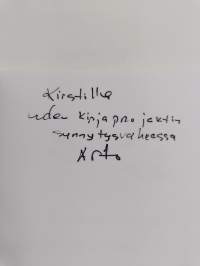 Kirstille
uden kirjaprojektin
synnytysvaiheessa
Arto